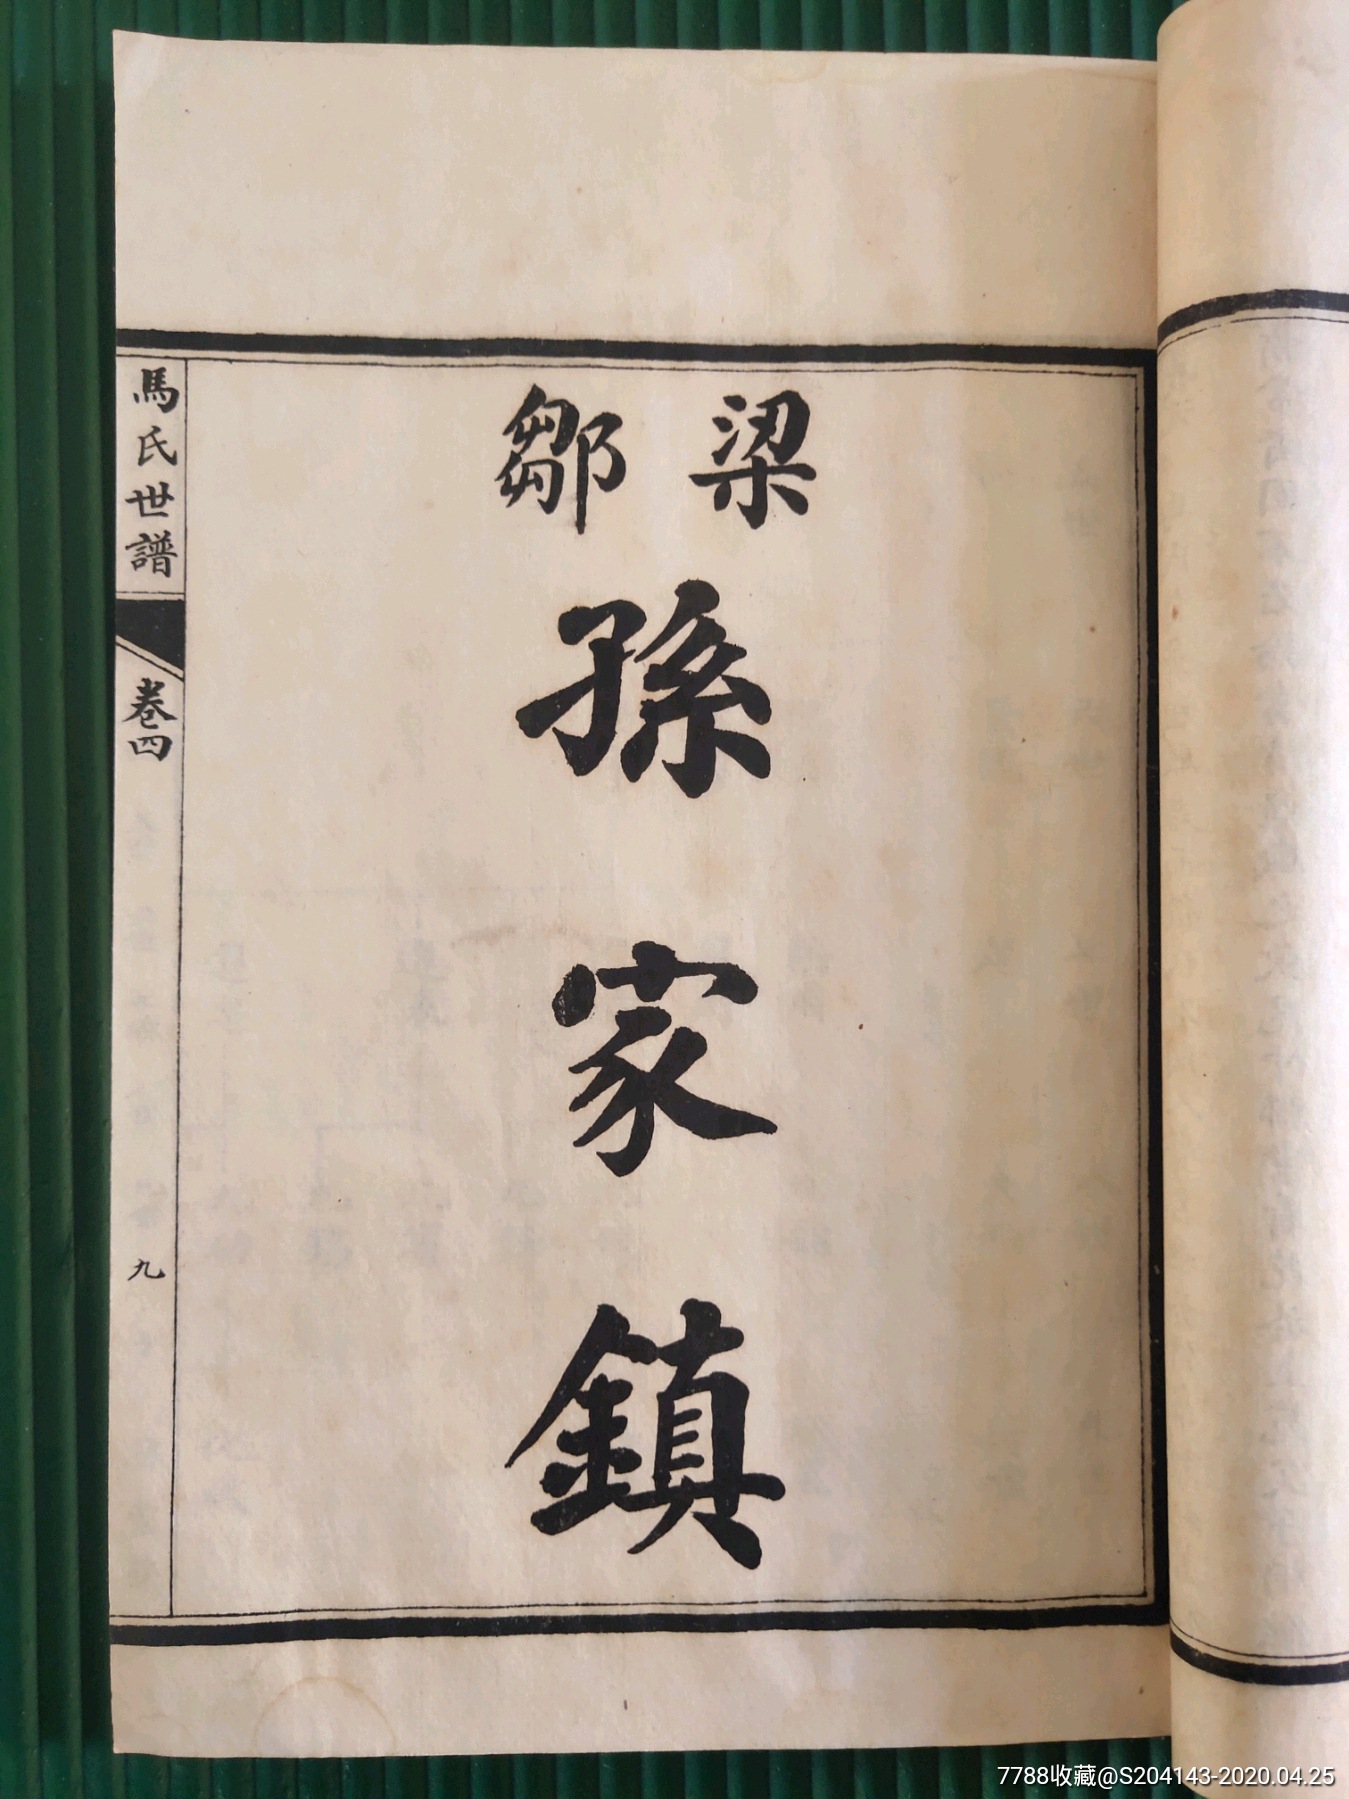 梁鄒
孫家鎮
馬氏世譜
卷四
九
7788收藏@S204143-2020.04.25